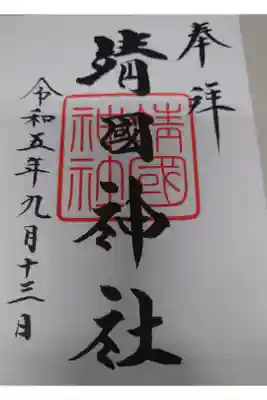 奉拝
靖國神社
靖國神社
令和五年九月十三日